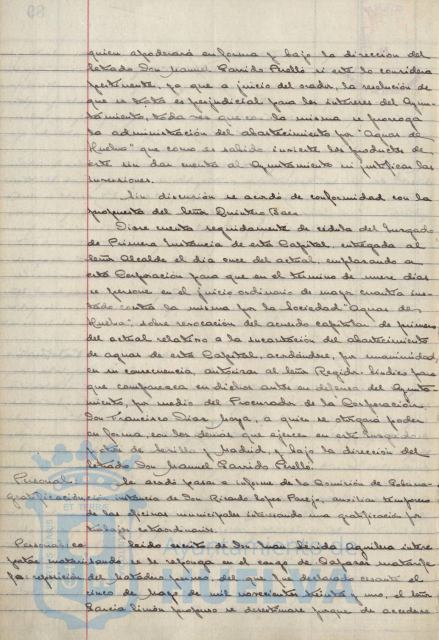 quien apoderará en forma y bajo la dirección del
letrado Don Manuel Garrido Perelló si esté lo considera
pertinente, ya que a juicio del orador, la resolución de
que se trata es perjudicial para los intereses del Ayun-
tamiento, toda vez que con la misma se prorroga
la administración del abastecimiento por "Aguas de
Huelva" que como es sabido invierte los productos de
éste sin dar cuenta al Ayuntamiento ni justificar las
inversiones.
Sin discusión se acordó de conformidad con la
propuesta del Señor Quintero Baez
Diose cuenta seguidamente de cédula del Juzgado
de Primera Instancia de esta Capital, entregada al
Señor Alcalde el día once del actual, emplazando a
esta Corporación para que en el término de nueve días
se persone en el juicio ordinario de mayor cuantía ins-
tado contra la misma por la Sociedad "Aguas de
Huelva", sobre revocación del acuerdo capitular de primero
del actual relativo a la incautación del abastecimiento
de aguas de esta Capital, acordándose, por unanimidad,
en su consecuencia, autorizar al Señor Regidor Síndico para
que comparezca en dichos autos en defensa del Ayunta-
miento, por medio del Procurador de la Corporación
Don Francisco Díaz Moya, a quien se otorgará poder
en forma, con los demás que ejercen en este Juzgado
y otros de Sevilla y Madrid, y bajo la dirección del
letrado Don Manuel Garrido Perelló.
Personal.- Se acordó pase a informe de la Comisión de Goberna-
gratificación instancia de Don Ricardo López Parejo, auxiliar temporero
de las oficinas municipales interesando una gratificación por
trabajos extraordinarios.
Ayuntamiento
Leído escrito de Don Juan de la Aguilera intere
sando se le reponga en el cargo de Capataz matarife
reposición del Matadero público, del que fue declarado cesante el
cinco de Mayo de mil novecientos treinta y uno, el Señor
García Limón propuso se desestimare porque de accederse